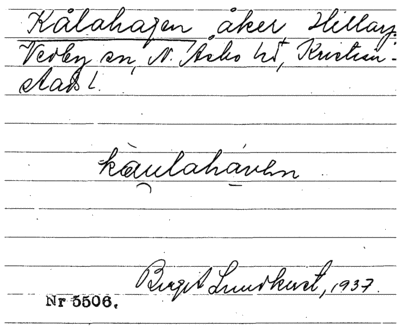 Kålahagen åker, Hillarp
Vedby sn, N. Åsbo hd, Kristian-
stads l.
kàulahávħn
Birgit Lundkvist, 1937.
Nr 5506.